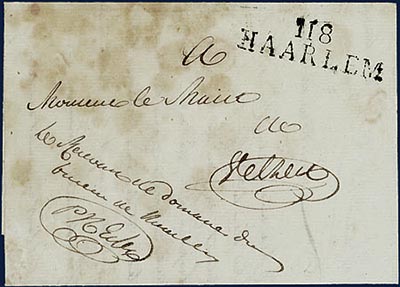 118
HAARLEM
A
Monsieur le Maire
de
Velsen
Le Receveur de domaine du
bureau de